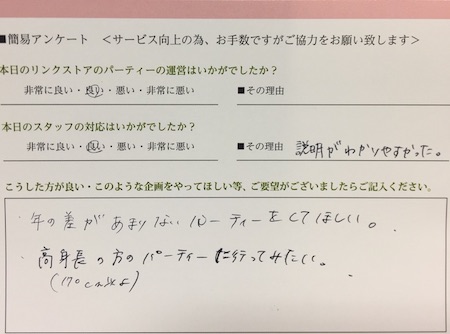 ■簡易アンケート ＜サービス向上の為、お手数ですがご協力をお願い致します＞
本日のリンクストアのパーティーの運営はいかがでしたか？
非常に良い・良い・悪い・非常に悪い ■その理由
本日のスタッフの対応はいかがでしたか？
非常に良い・良い・悪い・非常に悪い ■その理由 説明がわかりやすかった。
こうした方が良い・このような企画をやってほしい等、ご要望がございましたらご記入ください。
年の差があまりないパーティーをしてほしい。
高身長の方のパーティーに行ってみたい。
(170cm以上)